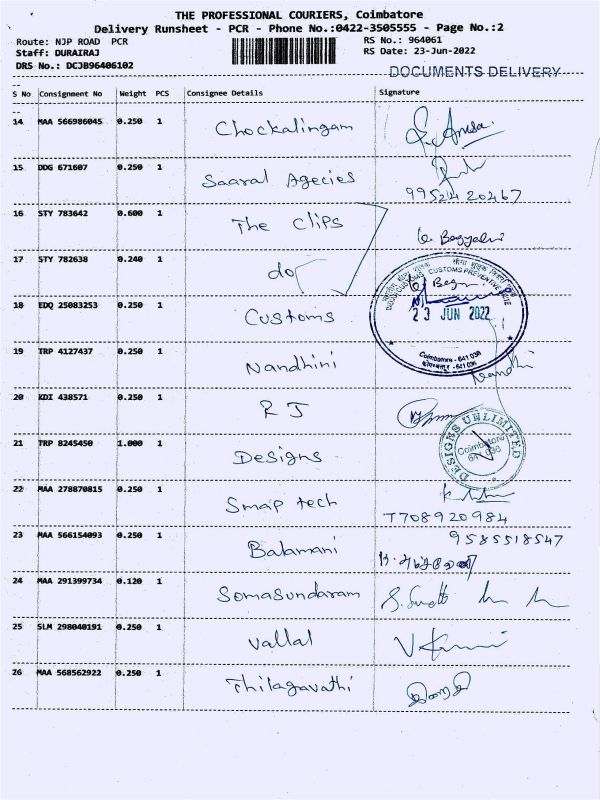 THE PROFESSIONAL COURIERS, Coimbatore
Delivery Runsheet - PCR - Phone No.:0422-3505555 - Page No.:2
Route: NJP ROAD PCR
RS No.: 964061
Staff: DURAIRAJ
RS Date: 23-Jun-2022
DRS No.: DCJB96406102
DOCUMENTS DELIVERY
S No Consignment No Weight PCS Consignee Details Signature
14 MAA 566986045 0.250 1 Chockalingam
15 DDG 671607 0.250 1 Saaral Agecies
9952420467
16 STY 783642 0.600 1 The Clips
17 STY 782638 0.240 1 do
18 EDQ 25083253 0.250 1 Customs
CUSTOMS PREVENTIVE
23 JUN 2022
Coimbatore - 641 036
19 TRP 4127437 0.250 1 Nandhini Nandhi
20 KDI 438571 0.250 1 R J
21 TRP 8245450 1.000 1 Designs
DESIGNS UNLIMITED
Coimbatore
641 036
22 MAA 278870815 0.250 1 Smap tech
T708920984
23 MAA 566154093 0.250 1 Balamani 9585518547
24 MAA 291399734 0.120 1 Somasundaram
25 SLM 298040191 0.250 1 Vallal
26 MAA 568562922 0.250 1 Thilagavathi